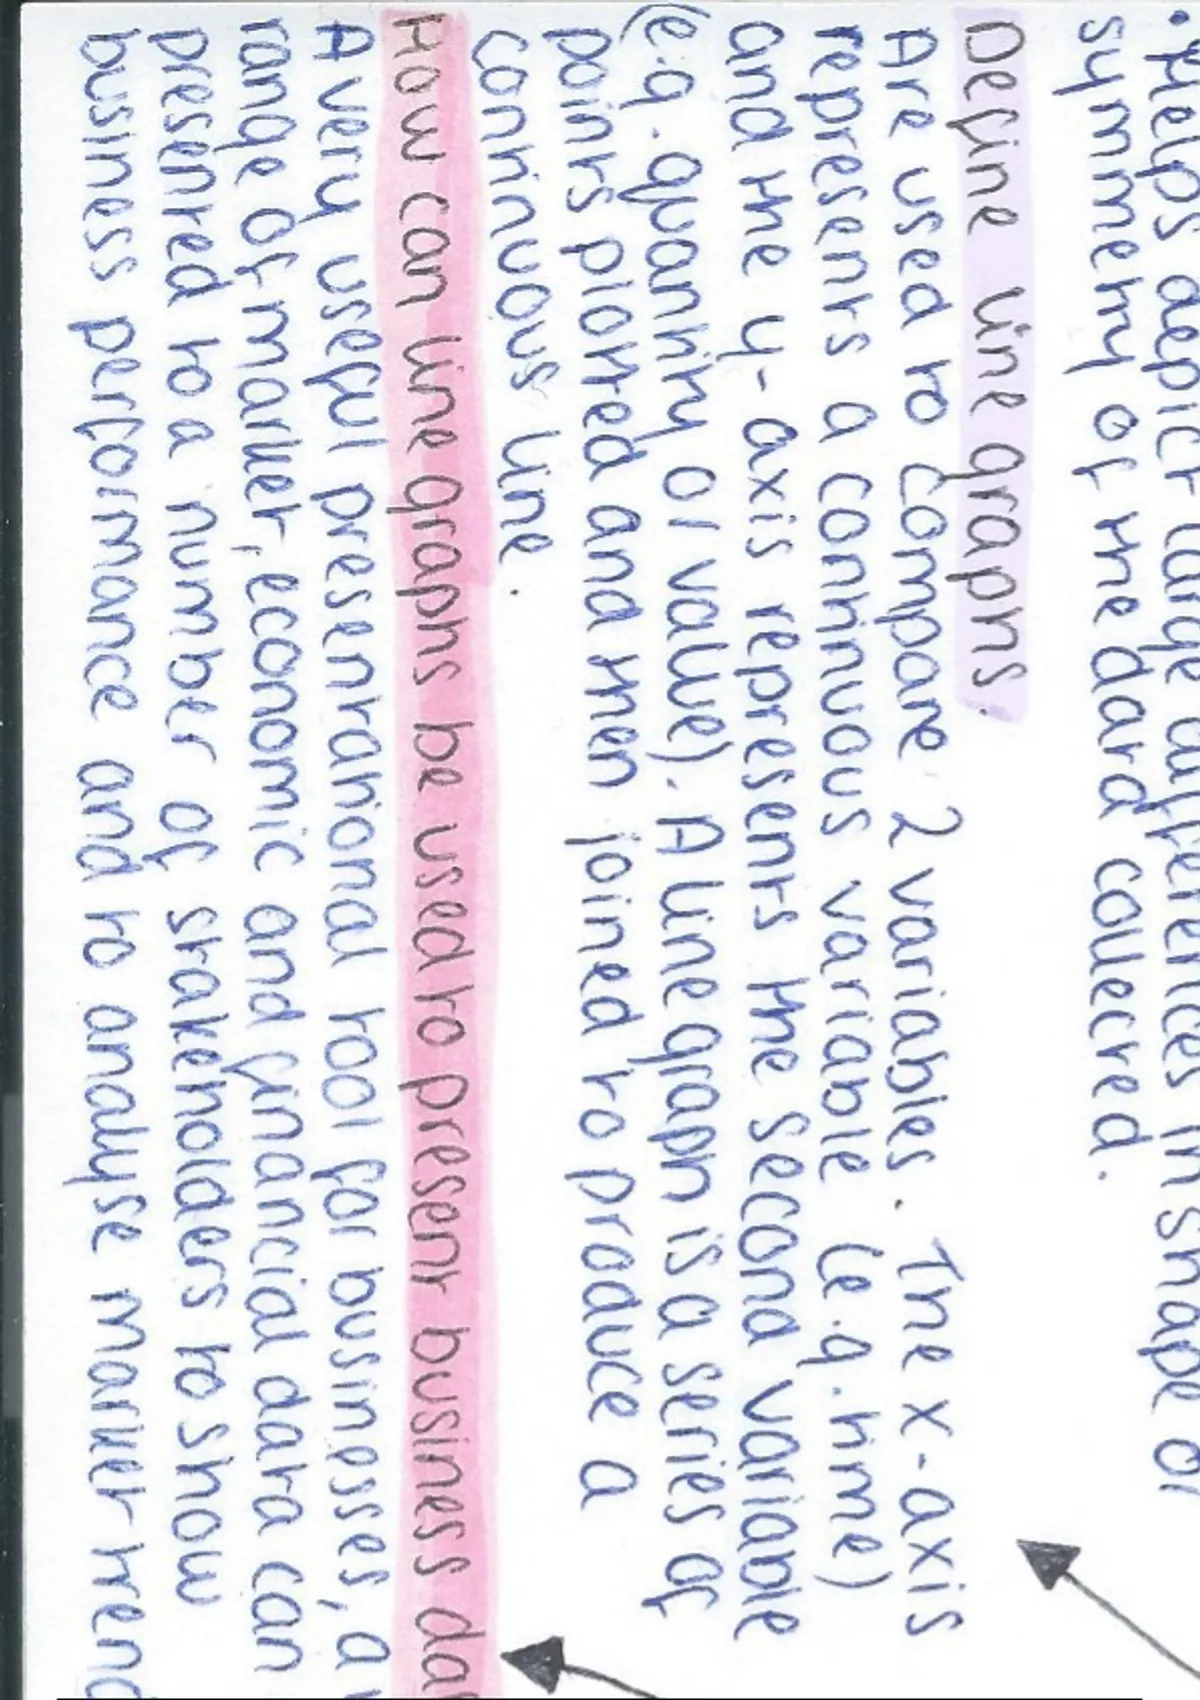 • Helps depict large differences in shape or
symmetry of the data collected.
Define line graphs.
Are used to compare 2 variables. The x-axis
represents a continuous variable (e.g. time)
and the y-axis represents the second variable
(e.g. quantity or value). A line graph is a series of
points plotted and then joined to produce a
continuous line.
How can line graphs be used to present business da
A very useful presentational tool for businesses, a
range of market, economic and financial data can
presented to a number of stakeholders to show
business performance and to analyse market trend